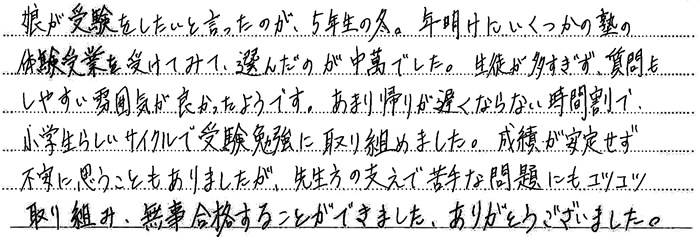 娘が受験をしたいと言ったのが、5年生の冬。年明けにいくつかの塾の
体験授業を受けてみて、選んだのが中萬でした。生徒が多すぎず、質問も
しやすい雰囲気が良かったようです。あまり帰りが遅くならない時間割で、
小学生らしいサイクルで受験勉強に取り組めました。成績が安定せず
不安に思うこともありましたが、先生方の支えで苦手な問題にもコツコツ
取り組み、無事合格することができました、ありがとうございました。